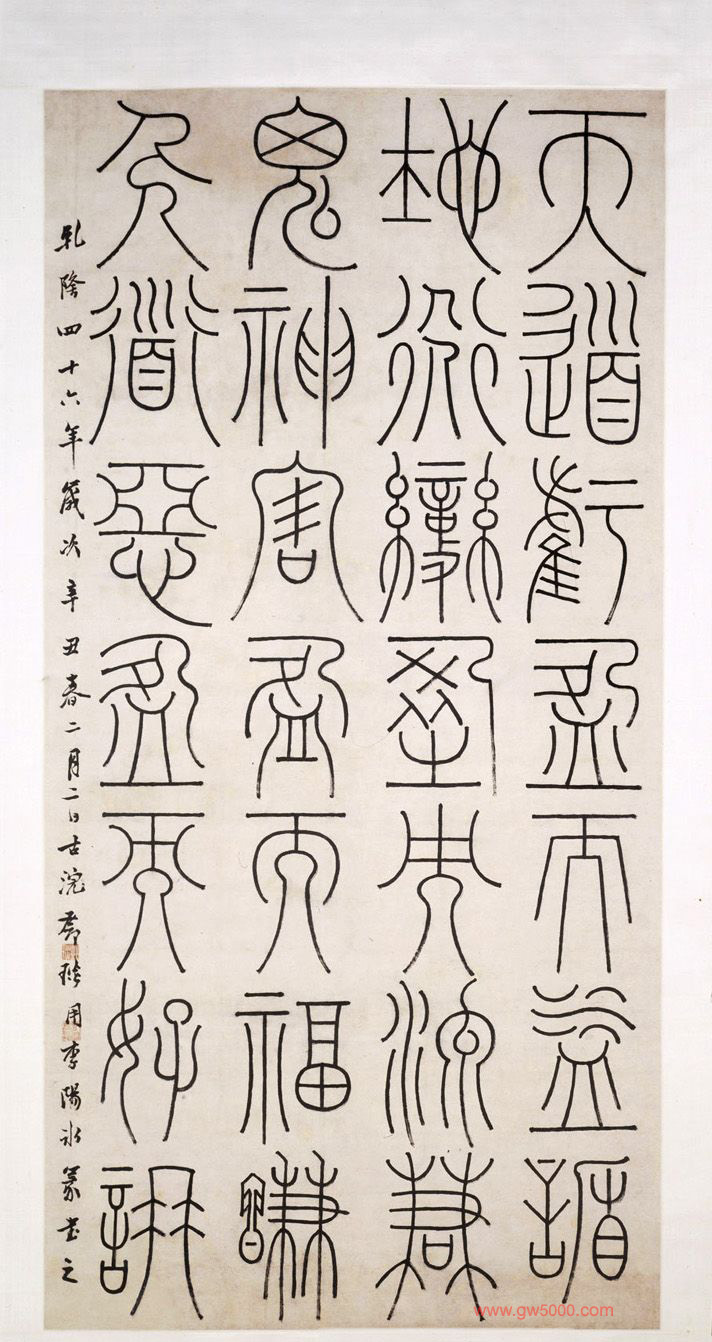 天道虧盈而益謙
地道變盈而流謙
鬼神害盈而福謙
人道惡盈而好謙
乾隆四十六年歲次辛丑春二月二日古浣鄧琰用李陽冰篆書之
www.gw5000.com